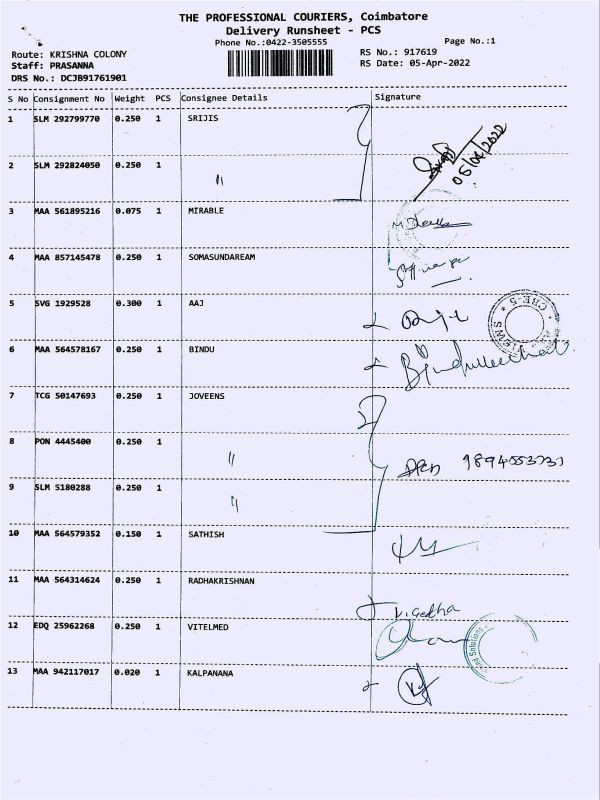 THE PROFESSIONAL COURIERS, Coimbatore
Delivery Runsheet - PCS
Phone No.:0422-3505555
Page No.:1
Route: KRISHNA COLONY
RS No.: 917619
Staff: PRASANNA
RS Date: 05-Apr-2022
DRS No.: DCJB91761901
S No Consignment No Weight PCS Consignee Details Signature
1 SLM 292799770 0.250 1 SRIJIS
05/04/2022
2 SLM 292824050 0.250 1 "
3 MAA 561895216 0.075 1 MIRABLE
4 MAA 857145478 0.250 1 SOMASUNDAREAM
5 SVG 1929528 0.300 1 AAJ
* CBE-5 *
6 MAA 564578167 0.250 1 BINDU
7 TCG 50147693 0.250 1 JOVEENS
8 PON 4445400 0.250 1 "
9 SLM 5180288 0.250 1 "
10 MAA 564579352 0.150 1 SATHISH
11 MAA 564314624 0.250 1 RADHAKRISHNAN
12 EDQ 25962268 0.250 1 VITELMED
Solutions
13 MAA 942117017 0.020 1 KALPANANA